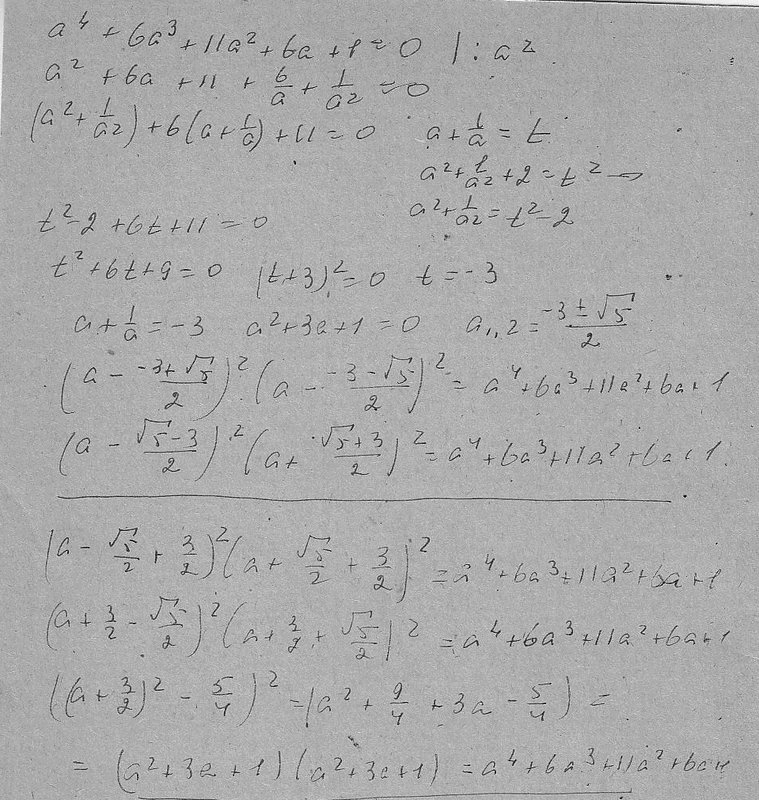 a⁴ + 6a³ + 11a² + 6a + 1 = 0 | : a²
a² + 6a + 11 + 6/a + 1/a² = 0
(a² + 1/a²) + 6(a + 1/a) + 11 = 0 a + 1/a = t
a² + 1/a² + 2 = t² →
a² + 1/a² = t² - 2
t² - 2 + 6t + 11 = 0
t² + 6t + 9 = 0 (t+3)² = 0 t = -3
a + 1/a = -3 a² + 3a + 1 = 0 a₁,₂ = (-3 ± √5)/2
(a - (-3+√5)/2)² (a - (-3-√5)/2)² = a⁴ + 6a³ + 11a² + 6a + 1
(a - (√5-3)/2)² (a + (√5+3)/2)² = a⁴ + 6a³ + 11a² + 6a + 1
(a - √5/2 + 3/2)² (a + √5/2 + 3/2)² = a⁴ + 6a³ + 11a² + 6a + 1
(a + 3/2 - √5/2)² (a + 3/2 + √5/2)² = a⁴ + 6a³ + 11a² + 6a + 1
((a + 3/2)² - 5/4)² = (a² + 9/4 + 3a - 5/4) =
= (a² + 3a + 1)(a² + 3a + 1) = a⁴ + 6a³ + 11a² + 6a + 1